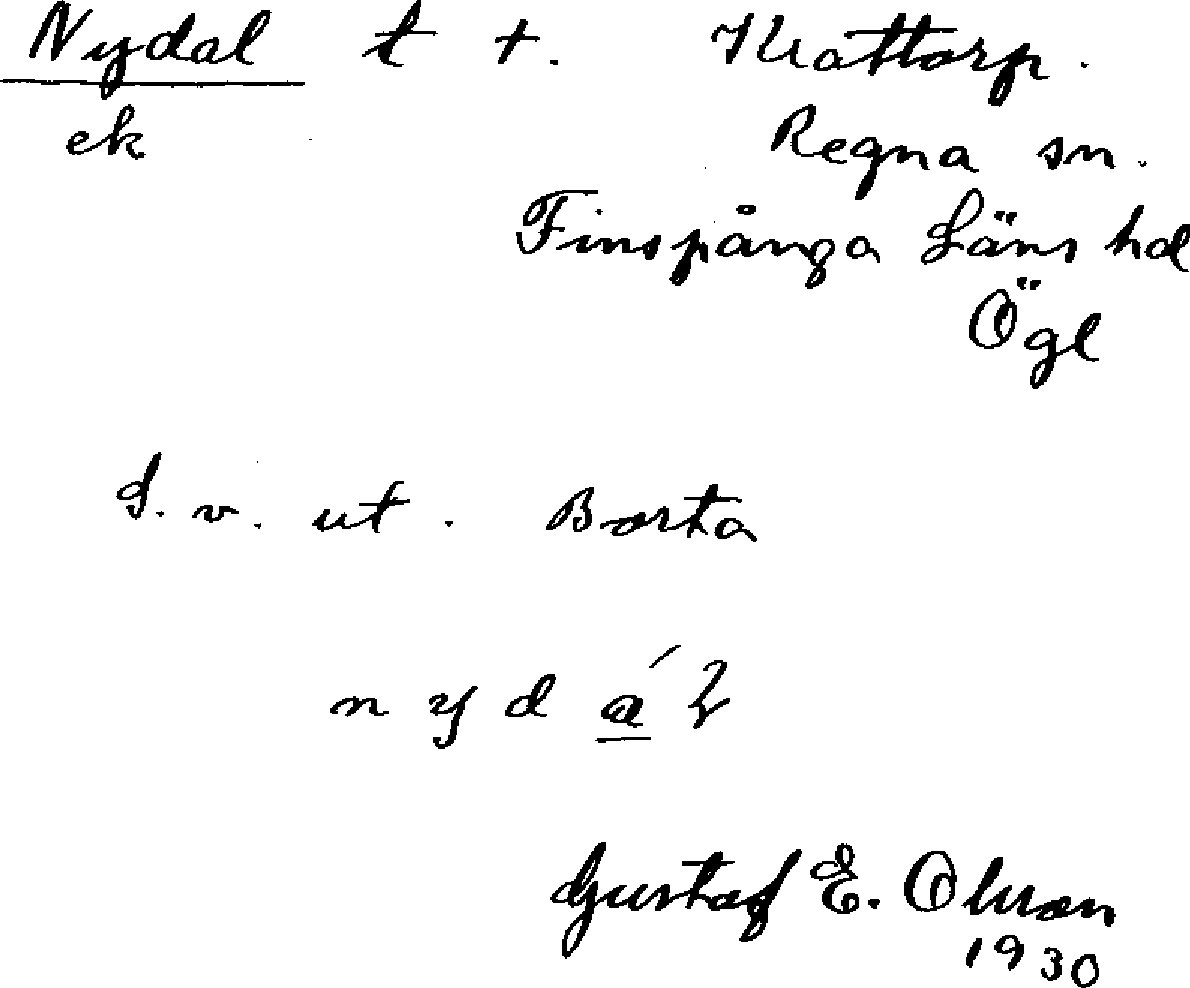 Nydal t +. Kattorp.
ek Regna sn.
Finspånga Läns hd
Ögl
S. v. ut. Borta
n y d á l
Gustaf E. Olsson
1930